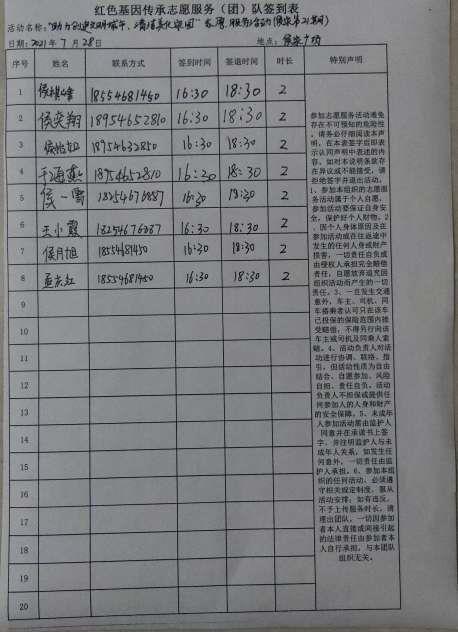 红色基因传承志愿服务（团）队签到表
活动名称："助力创建文明城市、清洁美化家园"志愿服务活动(侯家第21期)
日期: 2021年7月28日 地点: 侯家广场
序号 姓名 联系方式 签到时间 签退时间 时长 特别声明
1 18554681450 16:30 18:30 2
2 侯奕翔 18954652810 16:30 18:30 2
3 侯怡如 18954632850 16:30 18:30 2
4 于海燕 18954652810 16:30 18:30 2
5 侯一鸣 13254676887 16:30 18:30
6 王小霞 13254676887 16:30 18:30 2
7 侯月旭 18554681450 16:30 18:30 2
8 孟庆红 18554681450 16:30 18:30 2
9
10
11
12
13
14
15
16
17
18
19
20
参加志愿服务活动难免
存在不可预知的危险性
，请务必仔细阅读本声
明，在本表签字后即表
示认同声明中表述的内
容。如对本说明条款存
在异议或不能接受，请
拒绝签字并退出活动。
1、参加本组织的志愿服
务活动属于个人自愿，
参加活动要保证自身安
全，保护好个人财物。2
、因个人身体原因及在
参加活动或在往返途中
发生的任何人身或财产
损害，一切责任自负或
由侵权人承担完全赔偿
责任，自愿放弃追究因
组织活动而产生的一切
责任。3、一旦发生交通
意外，车主、司机、同
车搭乘者认可只在该车
已投保的保险范围内接
受赔偿，不得另行向该
车主或司机及同乘人索
赔。4、活动负责人对活
动进行协调、联络、指
引，但活动性质为自由
结合、自愿参加、风险
自担、责任自负，活动
负责人不担保或提供任
何参加人的人身和财产
的安全保障。5、未成年
人参加活动需由监护人
同意并在承诺书上签
字，并注明监护人与未
成年人关系，如发生任
何意外，一切责任由监
护人承担。6、参加本组
织的任何活动，必须遵
守相关规定制度，服从
活动安排，如有违反，
不予上传服务时长，请
理出团队，一切因参加
者本人直接或间接引起
的法律责任由参加者本
人自行承担，与本团队
组织无关。